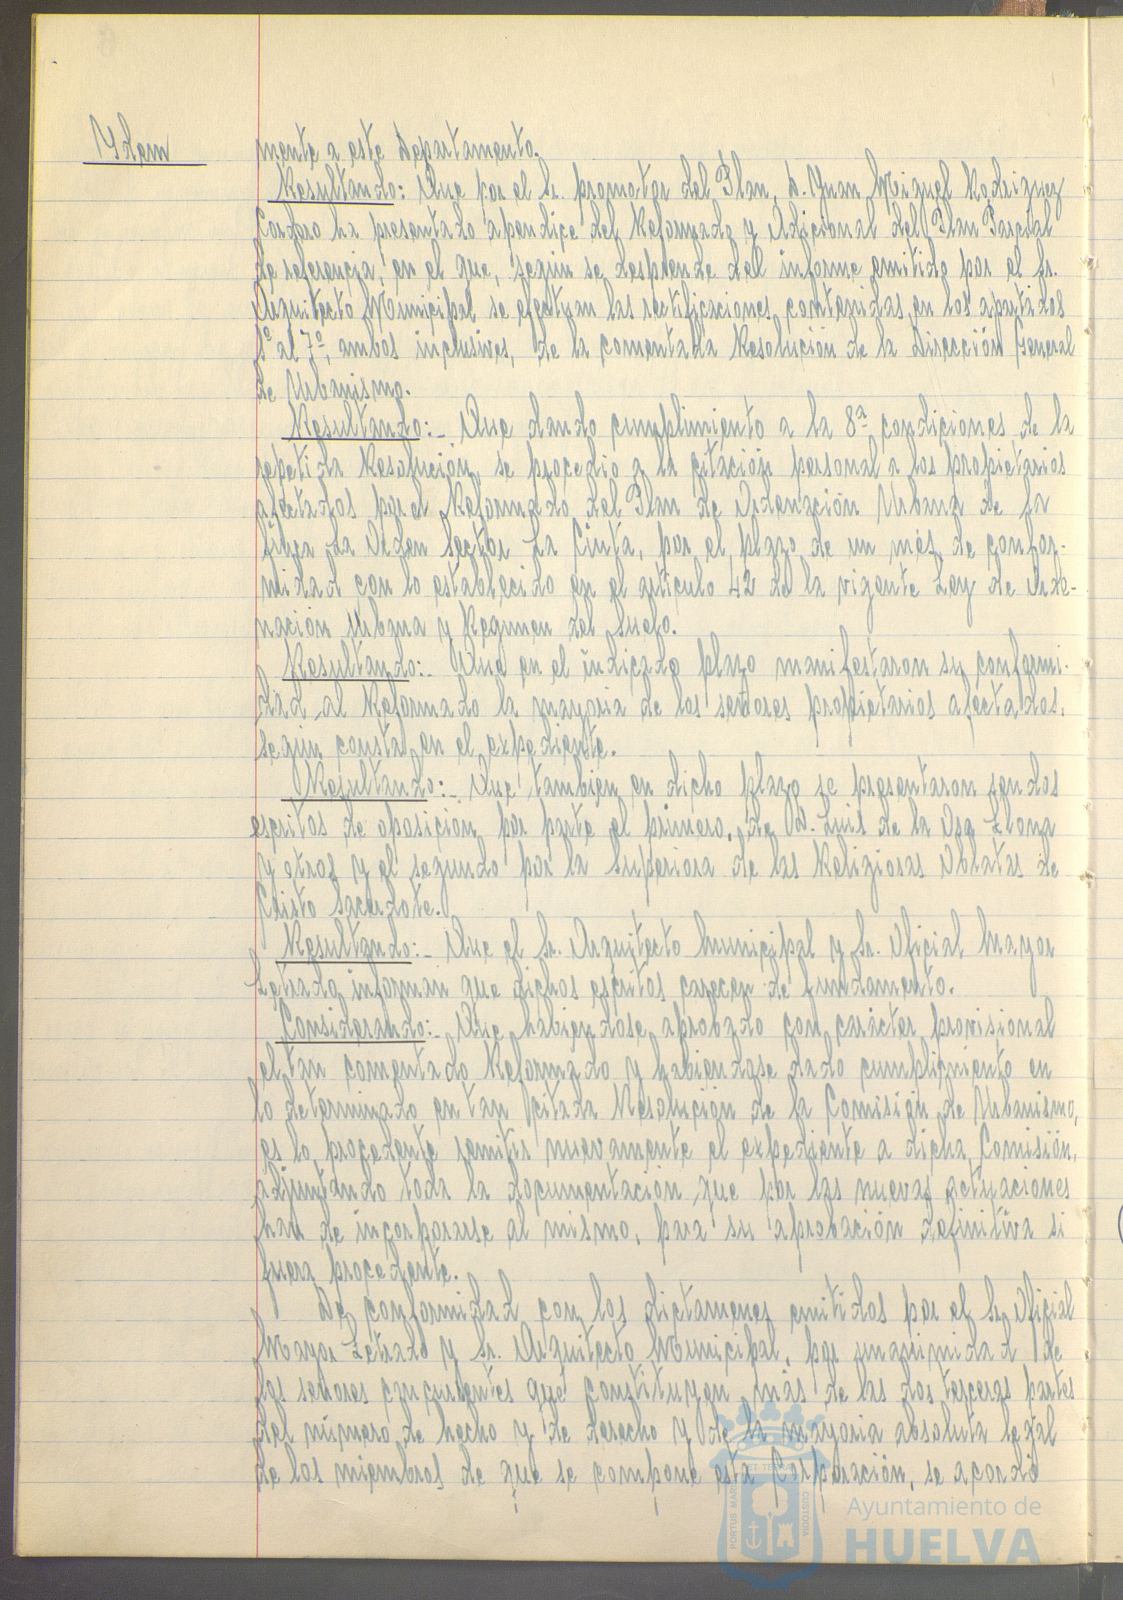 Ydem
mente a este Departamento.
Resultando: Que por el Sr. promotor del Plan, D. Juan Miguel Rodriguez
Cordero ha presentado apendice del Reformado y Adicional del Plan Parcial
de referencia, en el que, según se desprende del informe emitido por el Sr.
Arquitecto Municipal se efectuan las rectificaciones contenidas en los apartados
1º al 7º, ambos inclusives, de la comentada Resolución de la Dirección General
de Urbanismo.
Resultando:- Que dando cumplimiento a la 8ª condiciones de la
repetida Resolución, se procedió a la citación personal a los propietarios
afectados por el Reformado del Plan de Ordenación Urbana de la
finca La Orden Sector La Cinta, por el plazo de un mes, de confor-
midad con lo establecido en el artículo 42 de la vigente Ley de Orde-
nación Urbana y Regimen del Suelo.
Resultando:- Que en el indicado plazo manifestaron su conformi-
dad al Reformado la mayoria de los señores propietarios afectados,
según consta en el expediente.
Resultando:- Que tambien en dicho plazo se presentaron sendos
escritos de oposición, por parte el primero, de D. Luis de la Osa
y otros y el segundo por la Superiora de las Religiosas Oblatas de
Cristo Sacerdote.
Resultando:- Que el Sr. Arquitecto Municipal y Sr. Oficial Mayor
Letrado informan que dichos escritos carecen de fundamento.
Considerando:- Que habiendose aprobado con carácter provisional
el tan comentado Reformado y habiendose dado cumplimiento en
lo determinado en tan citada Resolución de la Comisión de Urbanismo,
es lo procedente remitir nuevamente el expediente a dicha Comisión,
adjuntando toda la documentación que por las nuevas actuaciones
han de incorporarse al mismo, para su aprobación definitiva si
fuera procedente.
De conformidad con los dictamenes emitidos por el Sr. Oficial
Mayor Letrado y Sr. Arquitecto Municipal, por unanimidad de
los señores concurrentes que constituyen más de las dos terceras partes
del número de hecho y de derecho y de la mayoria absoluta legal
de los miembros de que se compone esta Corporación, se acordó
PORTUS MARIS ET TERRAE CUSTODIA
Ayuntamiento de
HUELVA